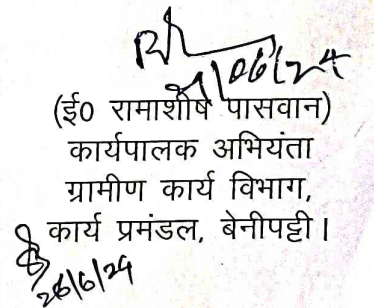 21/06/24
(ई० रामाशीष पासवान)
कार्यपालक अभियंता
ग्रामीण कार्य विभाग,
कार्य प्रमंडल, बेनीपट्टी।
26/6/24